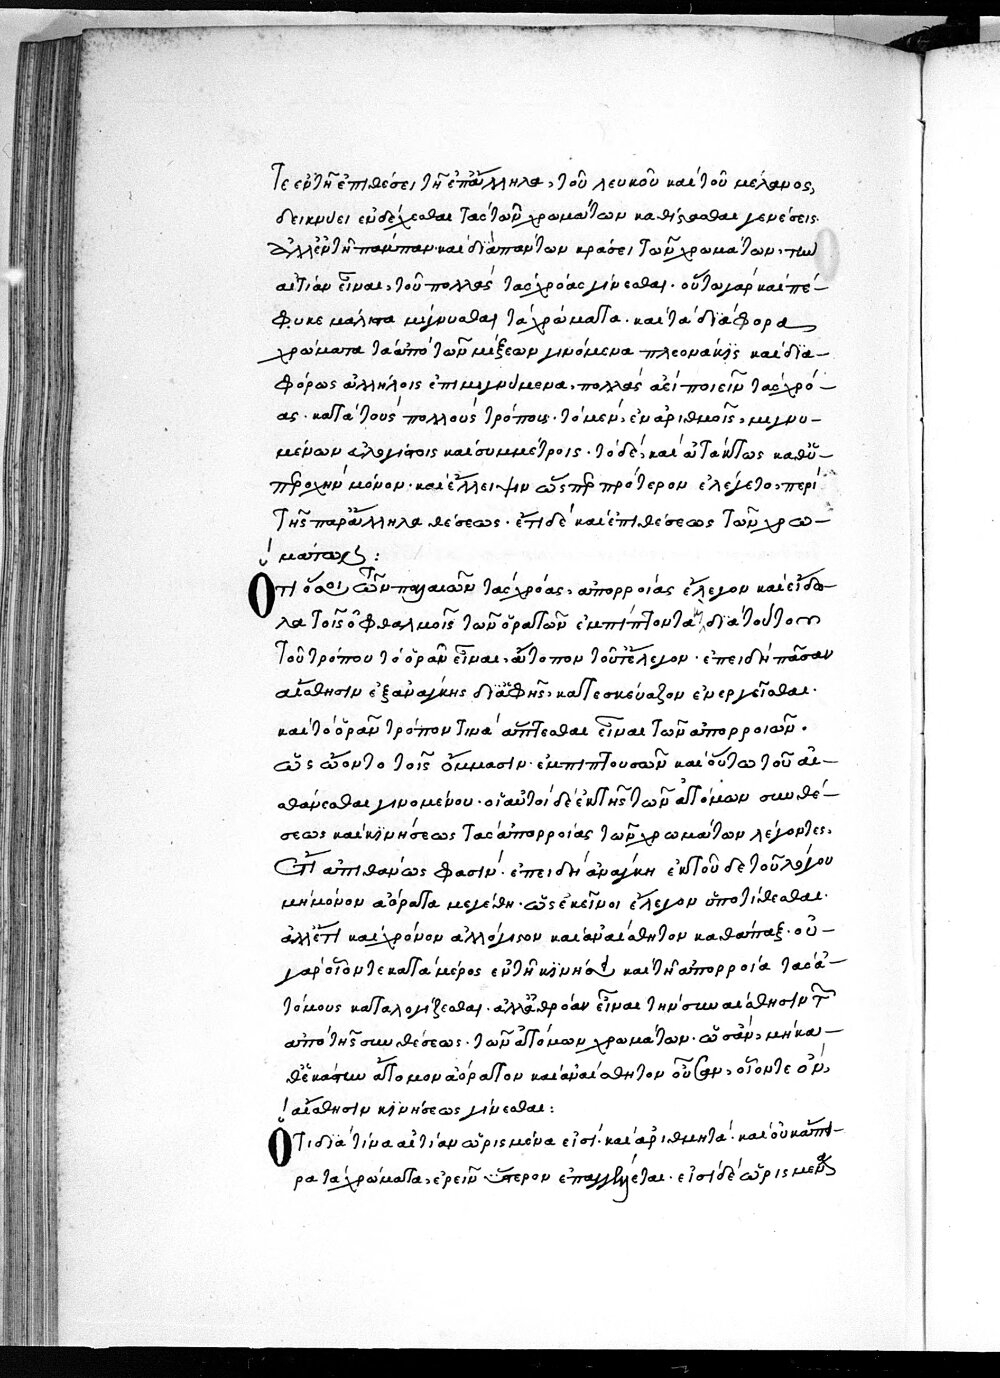 τε ἐν τῆ ἐπιθέσει τῆ ἐπάλληλα, τοῦ λευκοῦ καὶ τοῦ μέλανος,
δεικνύει ἐνδέχεσθαι τὰς τῶν χρωμάτων καθίστασθαι γενέσεις.
ἀλλ' ἐν τῆ πάντῃ παν καὶ διὰ πάντων κράσει τῶν χρωμάτων, τὴν
αἰτίαν εἶναι, τοῦ πολλὰς τὰς χρόας γίνεσθαι. οὕτω γὰρ καὶ πέ-
φυκε μάλιστα μίγνυσθαι τὰ χρώματα. καὶ τὰ διάφορα
χρώματα τὰ ἀπὸ τῶν μίξεων γινόμενα πλεονάκις καὶ δια-
φόρως ἀλλήλοις ἐπιμιγνύμενα, πολλὰς ἀεὶ ποιεῖν τὰς χρό-
ας. κατὰ τοὺς πολλοὺς τρόπους. τὸ μὲν, ἐν ἀριθμοῖς, μιγνυ-
μένων εὐλογίστοις καὶ συμμέτροις. τὸ δὲ, καὶ ἀτάκτως καθ' ὑ-
περοχὴν μόνον. καὶ ἔλλειψιν ὥσπερ πρότερον ἐλέγετο, περὶ
τῆς παράλληλα θέσεως. ἔτι δὲ καὶ ἐπιθέσεως τῶν χρω-
μάτων:
Ὅτι ὅσοι τῶν παλαιῶν τὰς χρόας, ἀπορροίας ἔλεγον καὶ εἴδω-
λα τοῖς ὀφθαλμοῖς τῶν ὁρατῶν ἐμπίπτοντα, διὰ τοῦτον
τοῦ τρόπου τὸ ὁρᾶν εἶναι, ἄτοπον τοῦτ' ἔλεγον. ἐπειδὴ πᾶσαν
αἴσθησιν ἐξανάγκης δι' ἁφῆς, κατεσκεύαζον ἐνεργεῖσθαι.
καὶ τὸ ὁρᾶν τρόπον τινὰ ἅπτεσθαι εἶναι τῶν ἀπορροιῶν.
ὡς ᾤοντο τοῖς ὄμμασιν. ἐμπιπτουσῶν καὶ οὕτω τοῦ αἰ-
σθάνεσθαι γινομένου. οἱ αὐτοὶ δὲ ἐκ τῆς τῶν ἀτόμων συνθέ-
σεως καὶ κινήσεως τὰς ἀπορροίας τῶν χρωμάτων λέγοντες,
ἔτι ἀπιθάνως φασίν. ἐπειδὴ ἀνάγκη ἐκ τοῦδε τοῦ λόγου
μὴ μόνον ἀόρατα μεγέθη. ὡς ἐκεῖνοι ἔλεγον ὑποτίθεσθαι.
ἀλλ' ἔτι καὶ χρόνον ἀλλόγιστον καὶ ἀναίσθητον καθάπαξ. οὐ
γὰρ οἷόν τε κατὰ μέρος ἐν τῆ κινήσει καὶ τῆ ἀπορροία τὰς ἀ-
τόμους καταλογίζεσθαι. ἀλλ' ἀθρόαν εἶναι τὴν συναίσθησιν τὴν
ἀπὸ τῆς συνθέσεως. τῶν ἀτόμων χρωμάτων. ὡς ἂν, μὴ κα-
θ' ἑκάστην ἄτομον ἀόρατον καὶ ἀναίσθητον οὖσαν, οἷόντε ὂν,
αἴσθησιν κινήσεως γίνεσθαι:
Ὅτι διὰ τίνα αἰτίαν ὡρισμένα εἰσὶ. καὶ ἀριθμητὰ. καὶ οὐκ ἄπει-
ρα τὰ χρώματα, ἐρεῖν ὕστερον ἐπαγγέλλεται. εἰσὶ δὲ ὡρισμένα